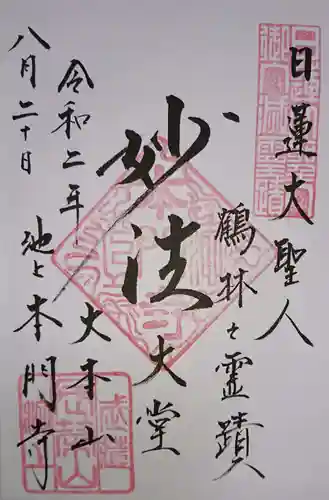 日蓮大聖人
鶴林之霊蹟
妙法
大堂
大本山
池上本門寺
令和二年
八月二十日